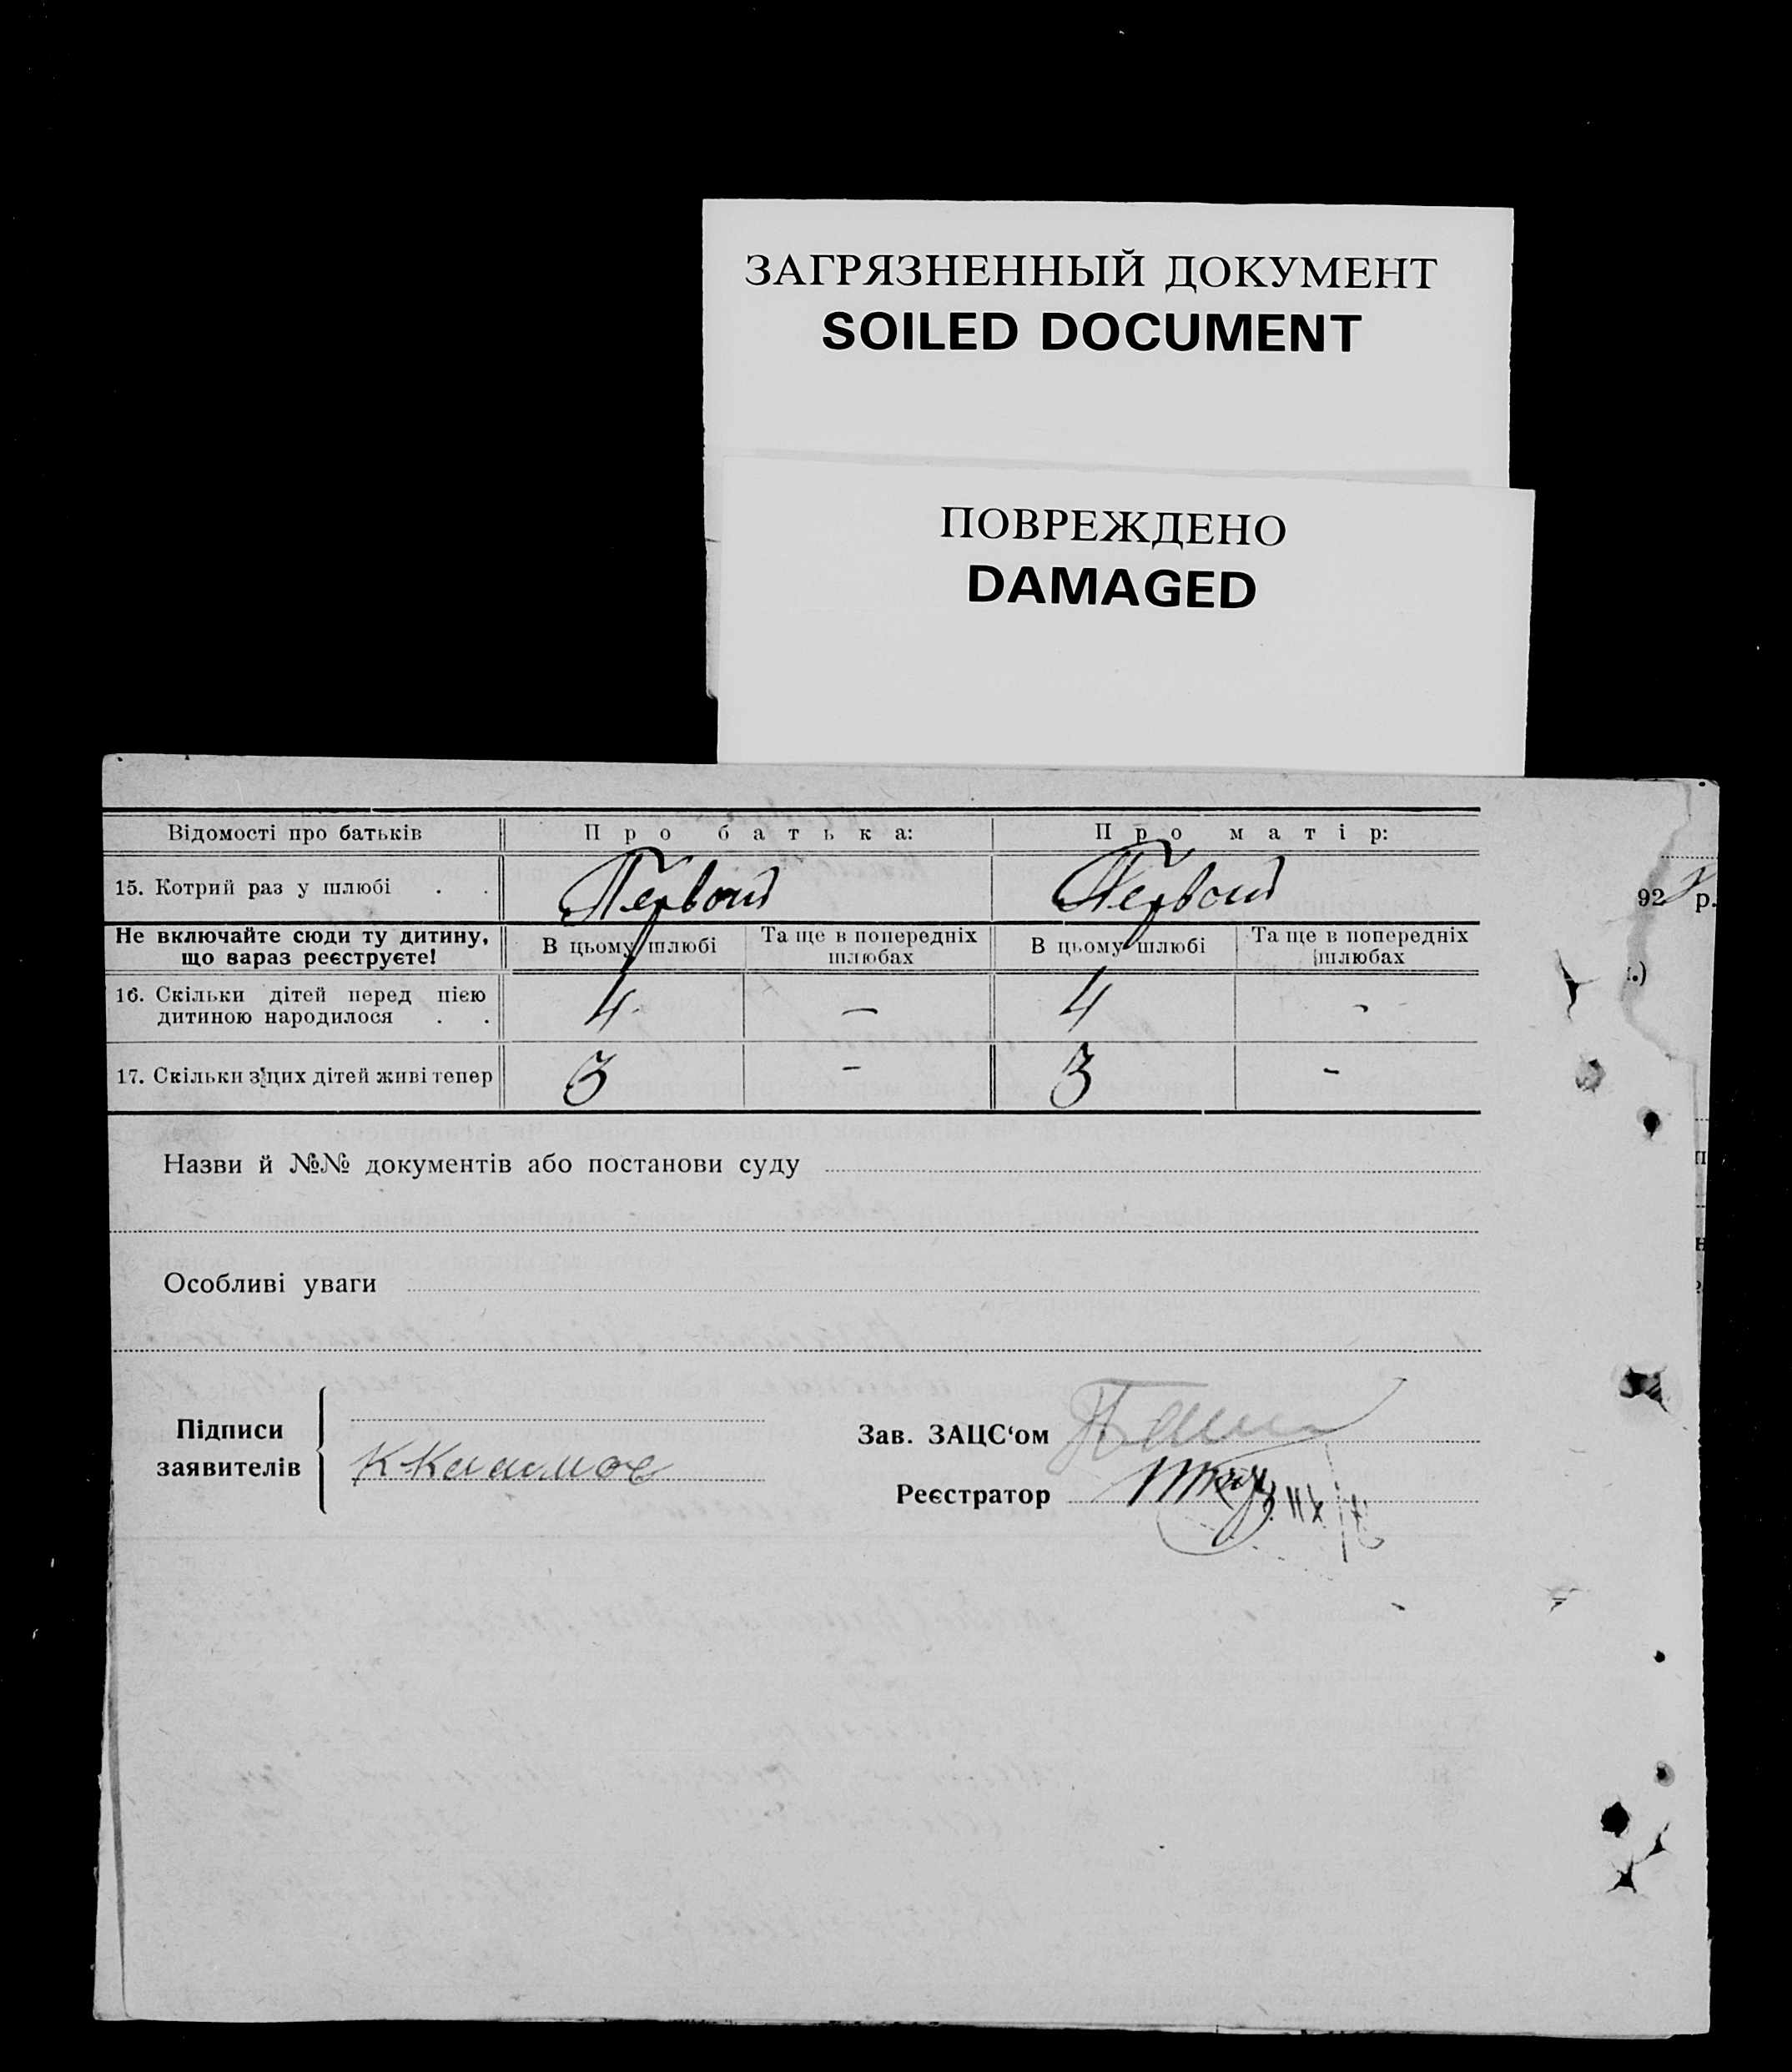 ЗАГРЯЗНЕННЫЙ ДОКУМЕНТ
SOILED DOCUMENT
ПОВРЕЖДЕНО
DAMAGED
Відомості про батьків Про батька: Про матір:
15. Котрий раз у шлюбі . . Первый Первый
92 р.
Не включайте сюди ту дитину, що зараз реєструєте! В цьому шлюбі Та ще в попередніх шлюбах В цьому шлюбі Та ще в попередніх шлюбах
16. Скільки дітей перед цією
дитиною народилося . . 4 — 4 -
17. Скільки з цих дітей живі тепер 3 - 3 -
Назви й №№ документів або постанови суду
Особливі уваги
Підписи
заявителів
Зав. ЗАЦС‘ом
К Климов
Реєстратор